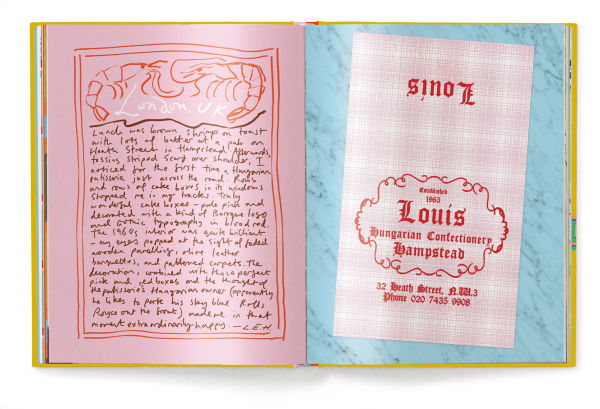 London, UK
Lunch was brown shrimp on toast
with lots of butter at a pub on
Heath Street in Hampstead. Afterwards,
tossing striped scarf over shoulder, I
noticed for the first time a Hungarian
patisserie just across the road. Rows
and rows of cake boxes in its windows
stopped me in my tracks. Truly
wonderful cake boxes – pale pink and
decorated with a kind of Baroque logo
and Gothic typography in blood red.
The 1960s interior was quite brilliant
– my eyes popped at the sight of faded
wooden panelling, olive leather
banquettes, and patterned carpets. The
decoration, combined with those perfect
pink and red boxes and the thought of
the patisserie's Hungarian owner (apparently
he likes to park his sky blue Rolls
Royce out the front) made me in that
moment extraordinarily happy. – L.E.H
Louis
Established
1963
Louis
Hungarian Confectionery
Hampstead
32 Heath Street, N.W.3
Phone 020 7435 9908